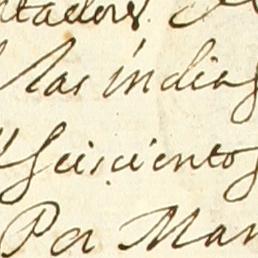 tadores
las índias
seiscientos
Por Man